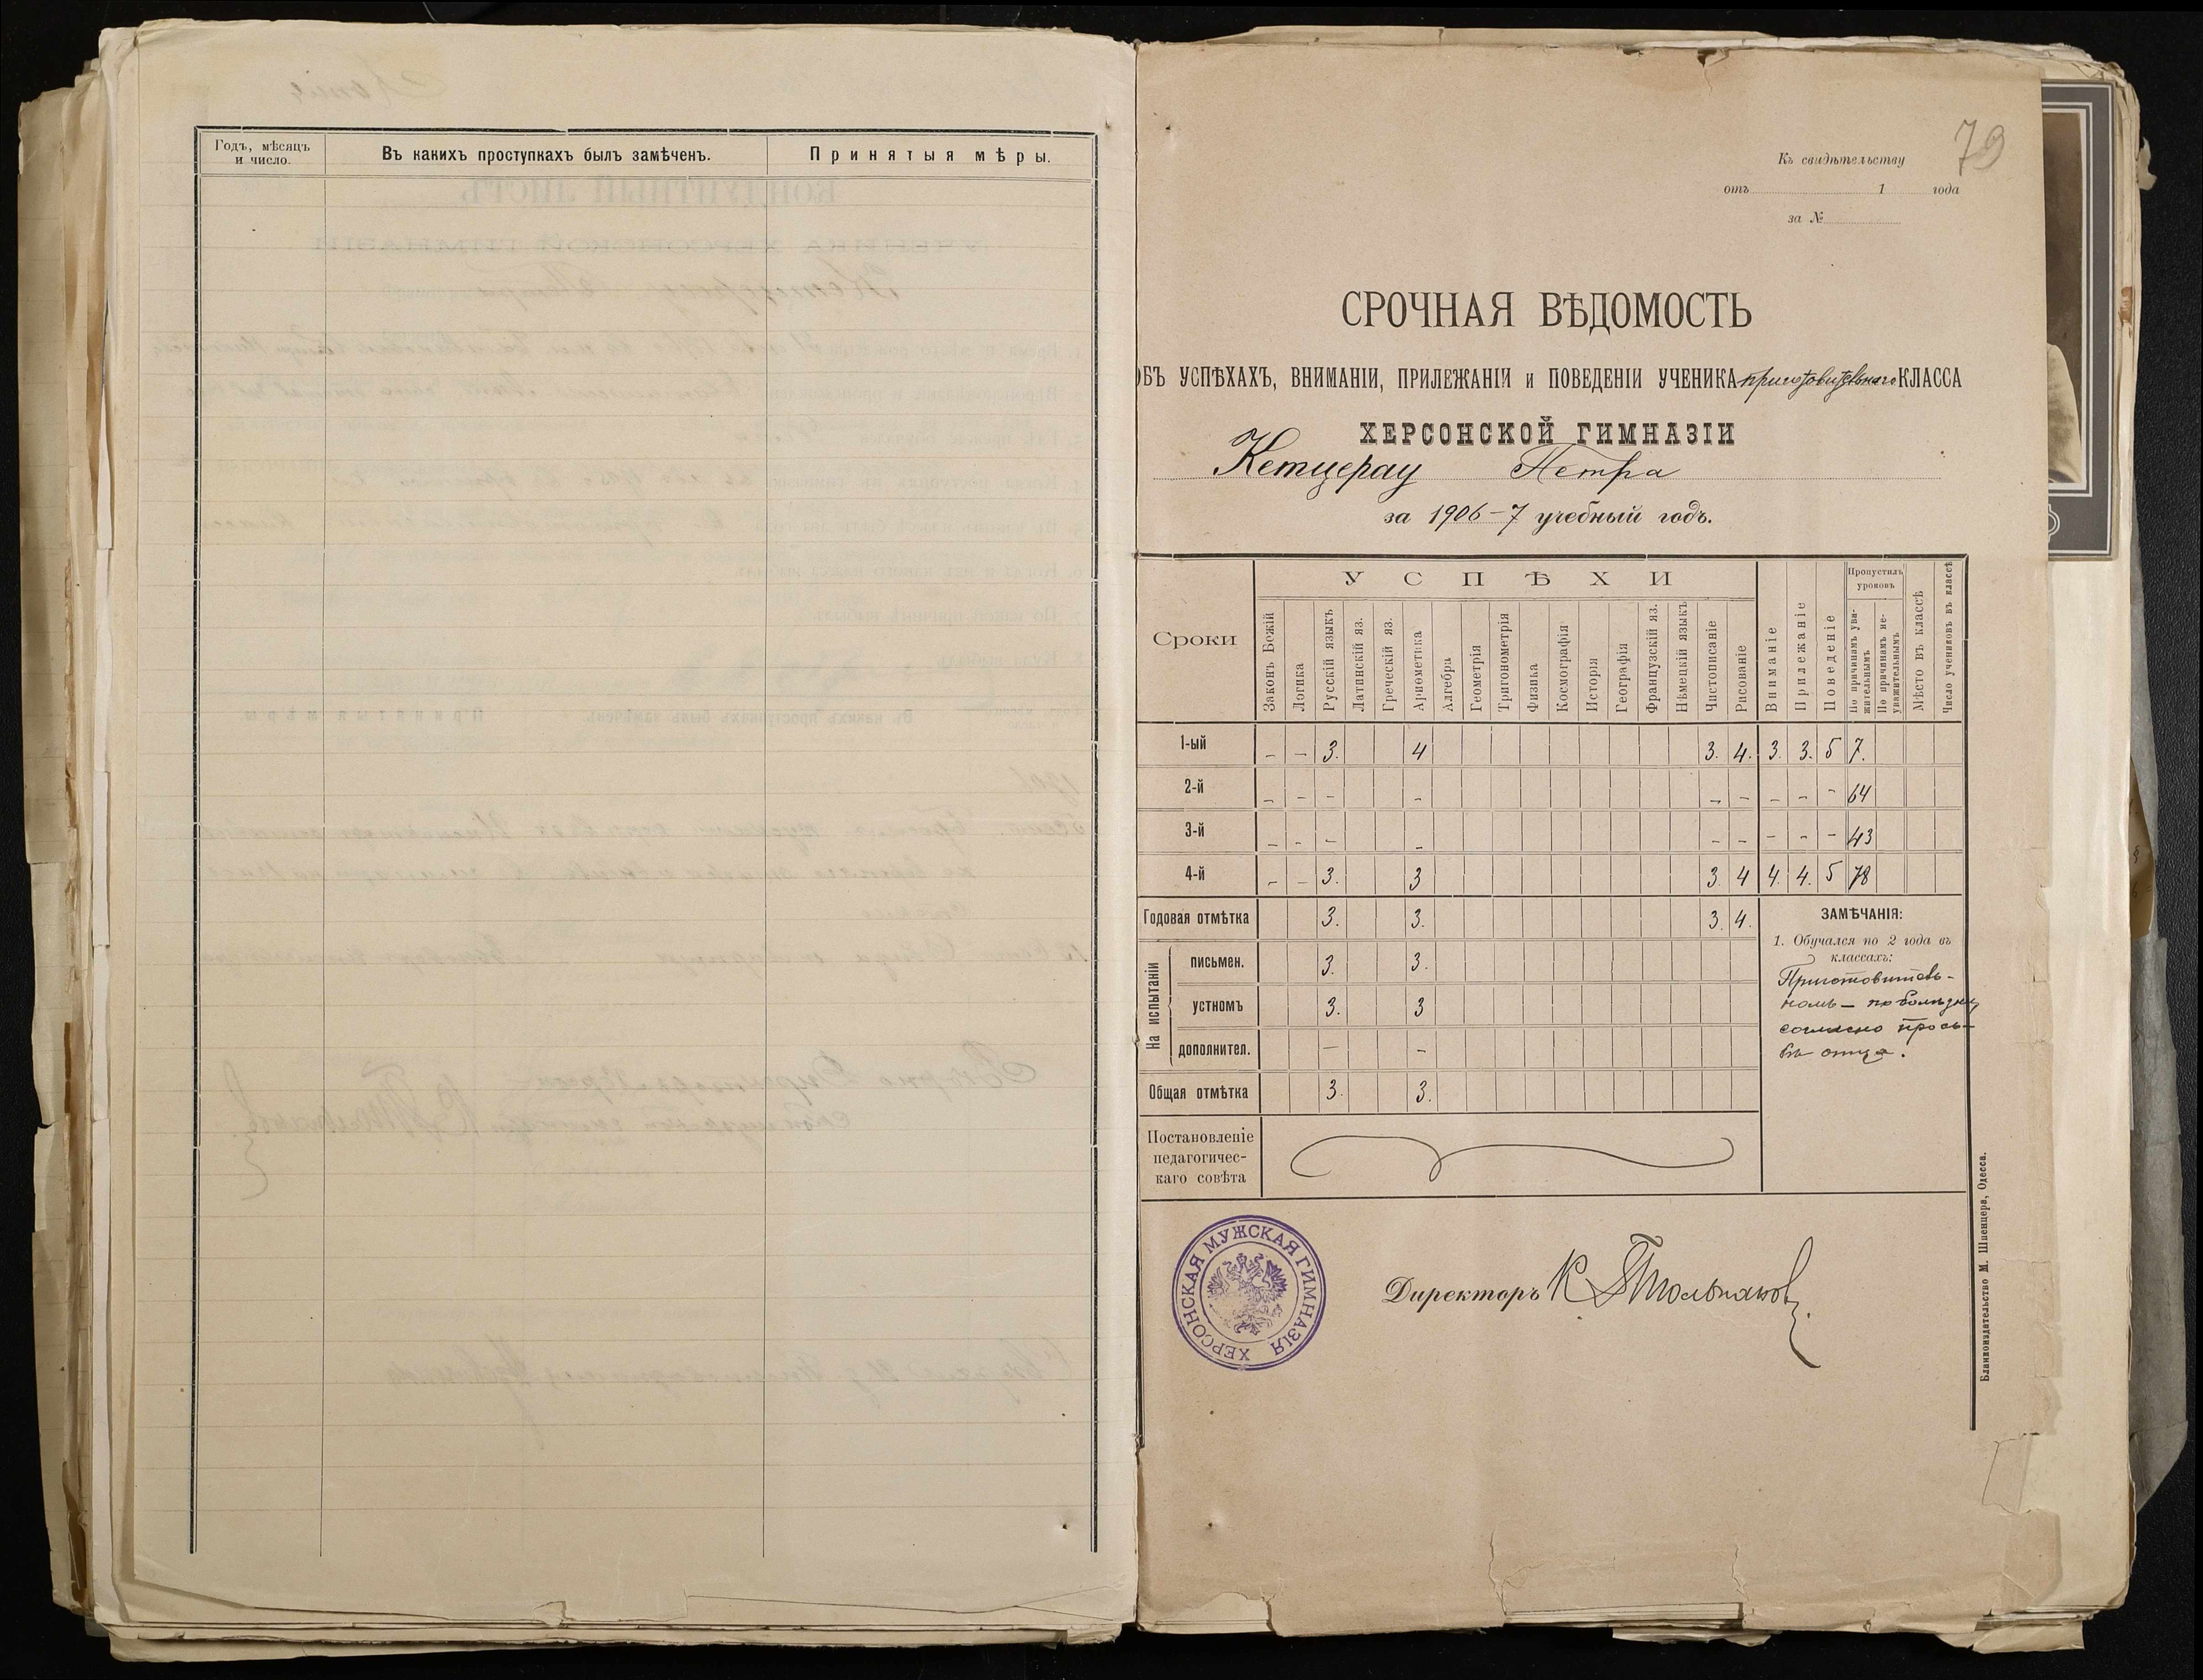 Годъ, мѣсяцъ и число. Въ какихъ проступкахъ былъ замѣченъ. Принятыя мѣры.
79
Къ свидѣтельству
отъ 1 года
за №
СРОЧНАЯ ВѢДОМОСТЬ
ОБЪ УСПѢХАХЪ, ВНИМАНІИ, ПРИЛЕЖАНІИ и ПОВЕДЕНІИ УЧЕНИКА приготовительнаго КЛАССА
ХЕРСОНСКОЙ ГИМНАЗІИ
Кетцерау Петра
за 1906-7 учебный годъ.
Сроки
УСПѢХИ
Законъ Божій
Логика
Русскій языкъ
Латинскій яз.
Греческій яз.
Ариѳметика
Алгебра
Геометрія
Тригонометрія
Физика
Космографія
Исторія
Географія
Французскій яз.
Нѣмецкій языкъ
Чистописаніе
Рисованіе
Вниманіе
Прилежаніе
Поведеніе
Пропустилъ уроковъ
По причинамъ уважительнымъ
По причинамъ неуважительнымъ
Мѣсто въ классѣ
Число учениковъ въ классѣ
1-ый – – 3. 4 3. 4. 3. 3. 5 7.
2-й – – – – – – – – – 64
3-й – – – – – – – – – 43
4-й – – 3. 3 3. 4 4. 4. 5 78
Годовая отмѣтка 3. 3. 3. 4.
На испытаніи
письмен. 3. 3.
устномъ 3. 3
дополнител. – –
Общая отмѣтка 3. 3.
ЗАМѢЧАНІЯ:
1. Обучался по 2 года въ
классахъ:
Приготовитель-
номъ – по болѣзни
согласно прось-
бѣ отца.
Постановленіе
педагогичес-
каго совѣта
ХЕРСОНСКАЯ МУЖСКАЯ ГИМНАЗІЯ
Директоръ К
Бланкоиздательство М. Шпенцера, Одесса.